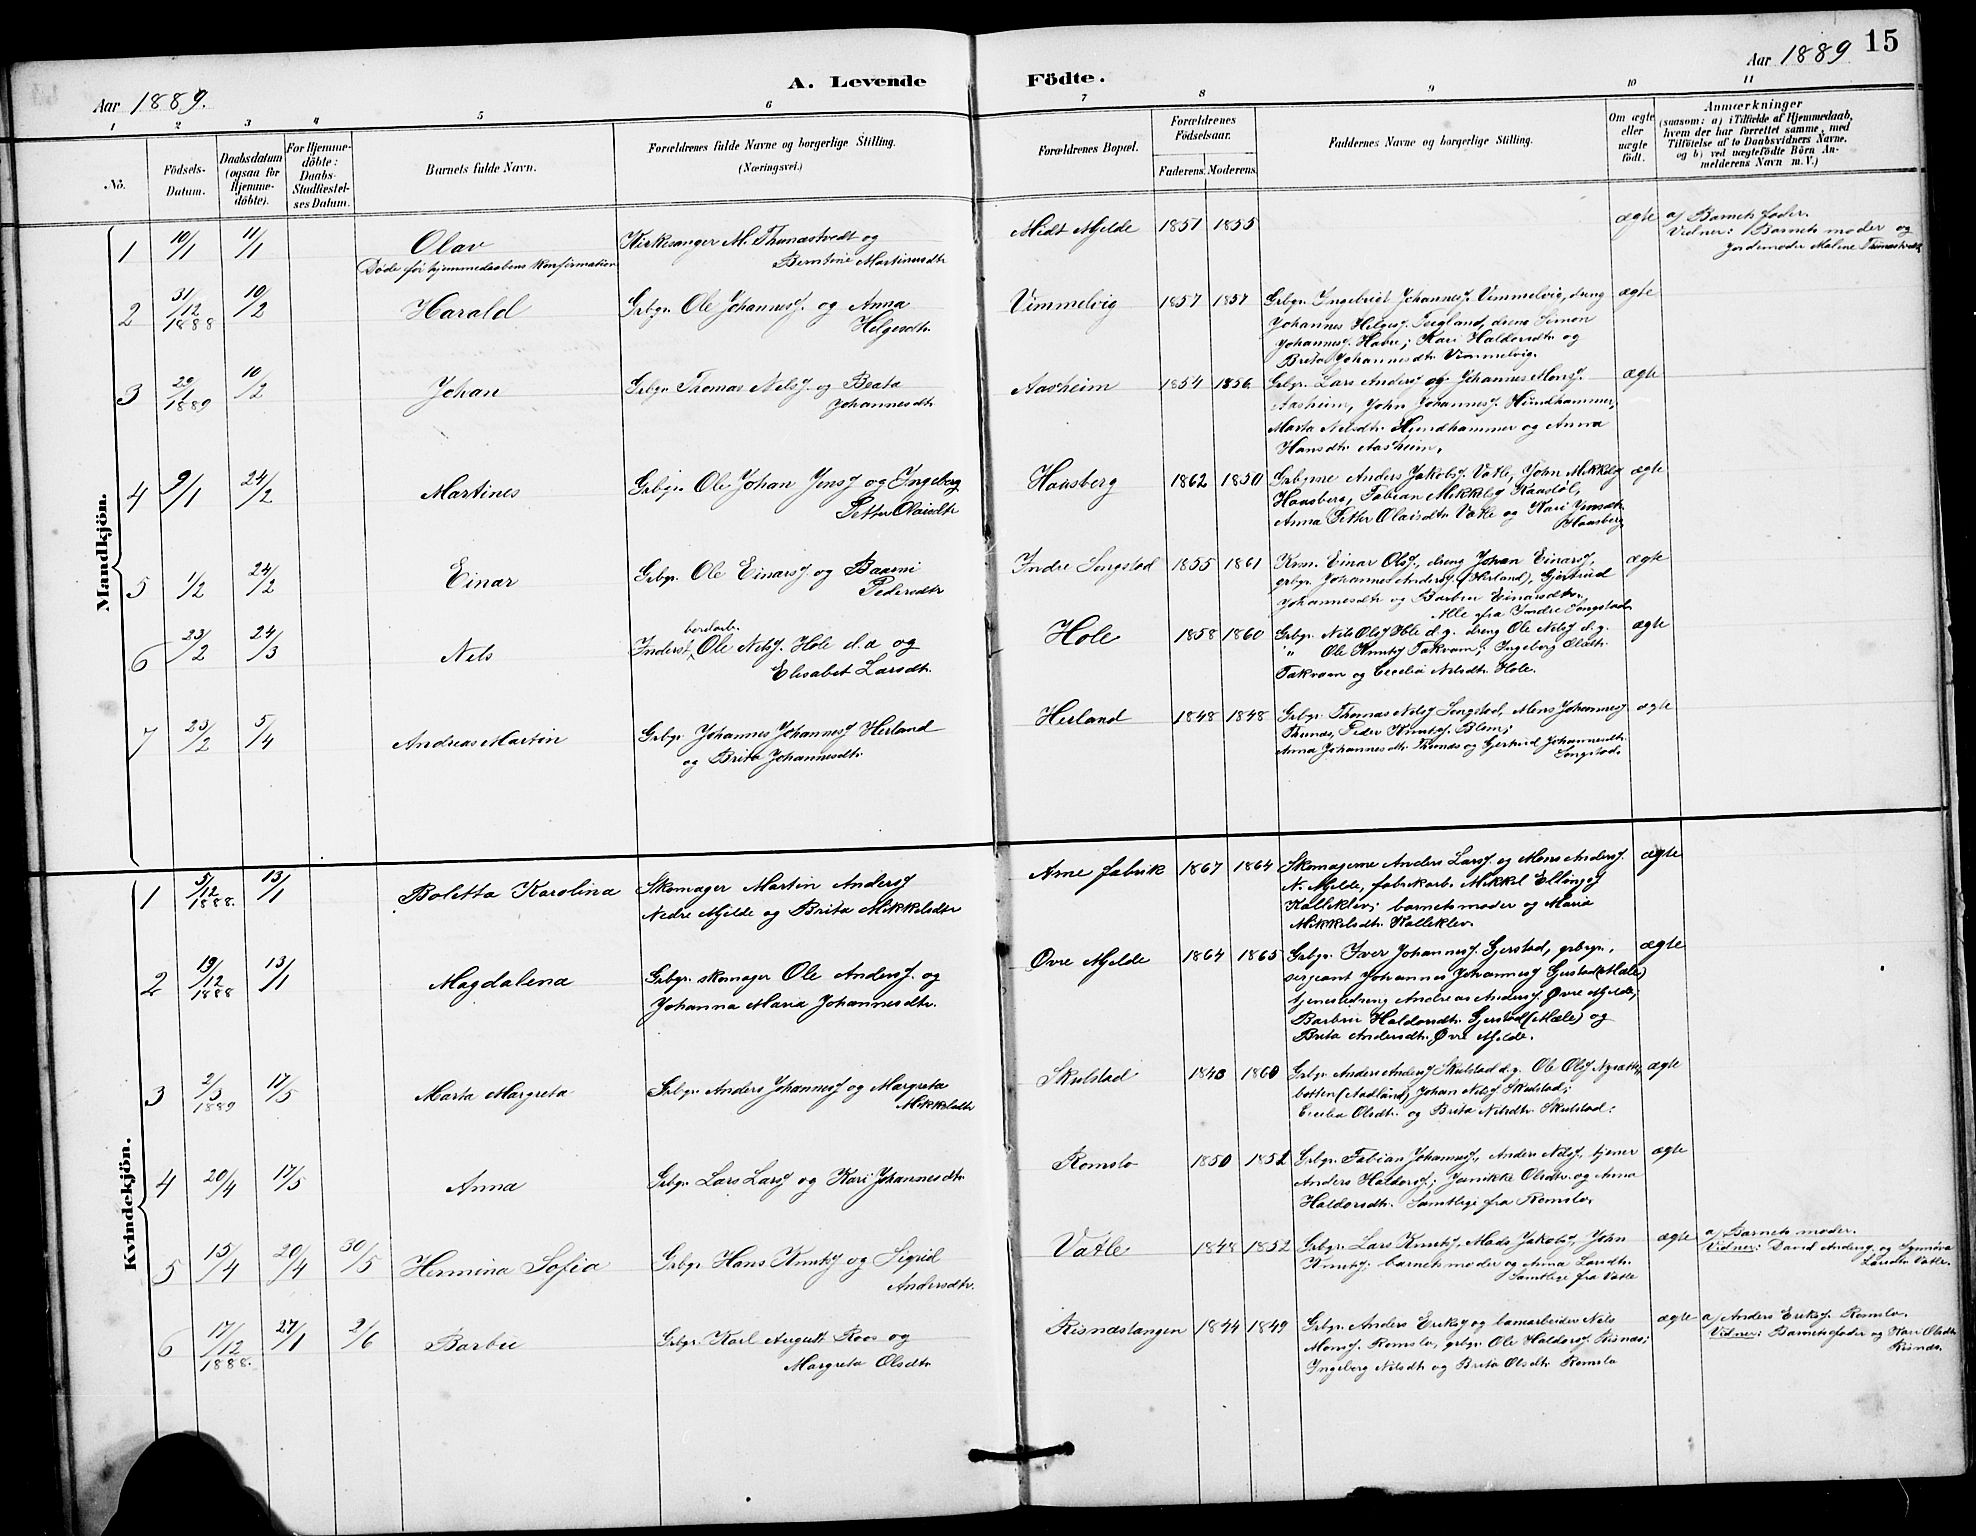 15
Aar 1889.
A. Levende
Födte.
Aar 1889
1 2 3 4 5 6 7 8 9 10 11
No.
Födsels-
Datum.
Daabsdatum
(ogsaa for
Hjemme-
döbte).
For Hjemme-
döbte:
Daabs-
Stadfæstel-
ses Datum.
Barnets fulde Navn.
Forældrenes fulde Navne og borgerlige Stilling.
(Næringsvei.)
Forældrenes Bopæl.
Forældrenes
Födselsaar.
Faderens. Moderens.
Faddernes Navne og borgerlige Stilling.
Om ægte
eller
uægte
födt.
Anmærkninger
(saasom: a) i Tilfælde af Hjemmedaab,
hvem der har forrettet samme, med
Tilföielse af to Daabsvidners Navne,
og b) ved uægtefödte Börn An-
melderens Navn m. V.)
Mandkjön.
1 10/1 11/1 Olav
Døde før hjemmedaabens Konfirmation
Kirkesanger M. Thunestvedt og
Berntine Martinusdtr
Midt Mjelde 1851 1855 ægte
a/ Barnets fader.
Vidner: Barnets moder og
jordemoder Malene Thunestvedt
2 31/12 1888 10/2 Harald
Grbgr. Ole Johannesf. og Anna
Helgesdtr.
Vimmelvig 1857 1857
Grbgr. Ingebrigt Johannesf. Vimmelvig, dreng
Johannes Helgesf. Teigland, dreng Simon
Johannesf. Havre; Kari Haldorsdtr og
Brita Johannesdtr. Vimmelvig.
ægte
3 29/1 1889 10/2 Johan
Grbgr. Thomas Nelsf. og Beata
Johannesdtr
Aasheim 1854 1856
Grbgr. Lars Andersf og Johannes Monsf.
Aasheim, John Johannesf. Hundhammer,
Marta Nelsdtr. Hundhammer og Anna
Hansdtr Aasheim.
ægte
4 9/1 24/2 Martines
Grbgr. Ole Johan Jensf og Ingeborg
Petter Olaisdtr
Haasberg 1862 1850
Grbgrne Anders Jakobsf. Vatle, John Mikkelsf
Haasberg, Fabian Mikkelsf Kaasløl,
Anna Petter Olaisdtr Vatle og Kari Jensdtr.
Haasberg
ægte
5 1/2 24/2 Einar
Grbgr. Ole Einarsf og Barni
Pedersdtr
Indre Songstad 1855 1861
Kmn. Einar Olsf., dreng Johan Einarsf,
grbgr. Johannes Andersf. (Herland), Gjertrud
Johannesdtr og Barbru Einarsdtr.
Alle fra Indre Songstad
ægte
6 23/2 24/3 Nels
bordarb.
Inderst Ole Nelsf. Hole d.a og
Elisabet Larsdtr.
Hole 1858 1860
Grbgr. Nils Olsf Hole d.g. dreng Ole Nelsf d.g.
" Ole Knutsf Takvam; Ingeborg Olsdtr.
Takvam og Cecilia Nelsdtr. Hole.
ægte
7 23/2 5/4 Andreas Martin
Grbgr. Johannes Johannesf Herland
og Brita Johannesdtr.
Herland 1848 1848
Grbgr. Thomas Nelsf Songstad, Mons Johannesf
Thunes, Peder Knutsf. Blem;
Anna Johannesdtr. Thunes og Gjertrud Johannesdtr.
Songstad.
ægte
Kvindekjön.
1 5/12 1888. 13/1 Boletta Karolina
Skomager Martin Andersf
Nedre Mjelde og Brita Mikkelsdtr
Arne fabrik 1867 1864
Skomagerne Anders Larsf og Mons Andersf.
N. Mjelde, fabrikarb. Mikkel Ellingsf
Kalleklev; barnets moder og Maria
Mikkelsdtr. Kalleklev.
ægte
2 19/12 1888 13/1 Magdalena
Grbgr. skomager Ole Andersf. og
Johanna Maria Johannesdtr.
Øvre Mjelde 1864 1865
Grbgr. Iver Johannesf. Gjerstad, grbgr.,
sergeant Johannes Johannesf Gjerstad (Mæle)
tjenestedreng Andreas Andersf. Øvre Mjelde;
Barbru Haldorsdtr. Gjerstad (Mæle) og
Brita Andersdtr. Øvre Mjelde.
ægte
3 2/3 1889 17/5 Marta Margreta
Grbgr. Anders Johannesf og Margreta
Mikkelsdtr
Skulstad 1840 1860
Grbgr. Anders Andersf Skulstad d.g. Ole Olsf
botten (Aadland), Johan Nelsf Skulstad;
Cecilia Olsdtr. og Brita Nilsdtr. Skulstad.
ægte
4 20/4 17/5 Anna
Grbgr. Lars Larsf og Kari Johannesdtr.
Romslo 1850 1852
Grbgr. Fabian Johannesf., Anders Nelsf., tjener
Anders Haldorsf; Jannikke Olsdtr. og Anna
Haldorsdtr. Samtlige fra Romslo.
ægte
5 15/4 20/4 30/5 Hermina Sofia
Grbgr. Hans Knutsf og Sigrid
Andersdtr.
Vatle 1848 1852
Grbgr. Lars Knutsf, Mads Jakobsf, John
Knutsf; barnets moder og Anna Larsdtr.
Samtlige fra Vatle
ægte
a/ Barnets moder.
Vidner: David Andersf og Synnøva
Larsdtr Vatle.
6 17/12 1888. 27/1 2/6 Barbu
Grbgr. Karl August Roos og
Margreta Olsdtr.
Risnæstangen 1844 1849
Grbgr. Anders Eriksf og banearbeider Nils
Monsf. Romslo, grbgr. Ole Haldorsf. Risnæs;
Ingeborg Nilsdtr og Brita Olsdtr. Romslo
ægte
a/ Anders Eriksf. Romslo.
Vidner: Barnets fader og Kari Olsdtr.
Risnæs.